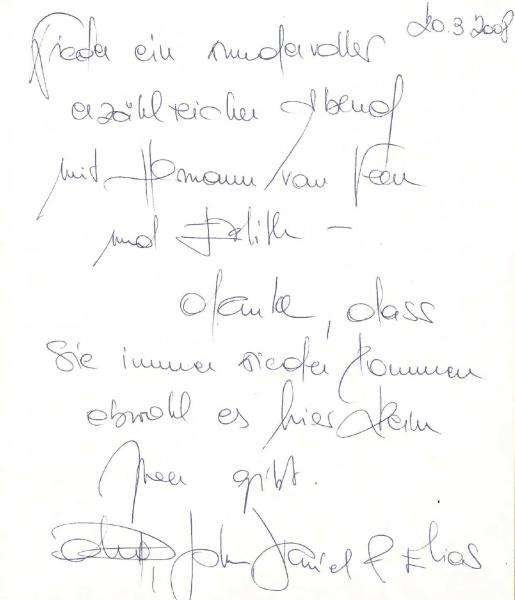 20.3.2008
Wieder ein wundervoller
erzählreicher Abend
mit Hermann van Veen
und Edith –
danke, dass
Sie immer wieder kommen
obwohl es hier kein
Meer gibt.
John, Daniel & Elias